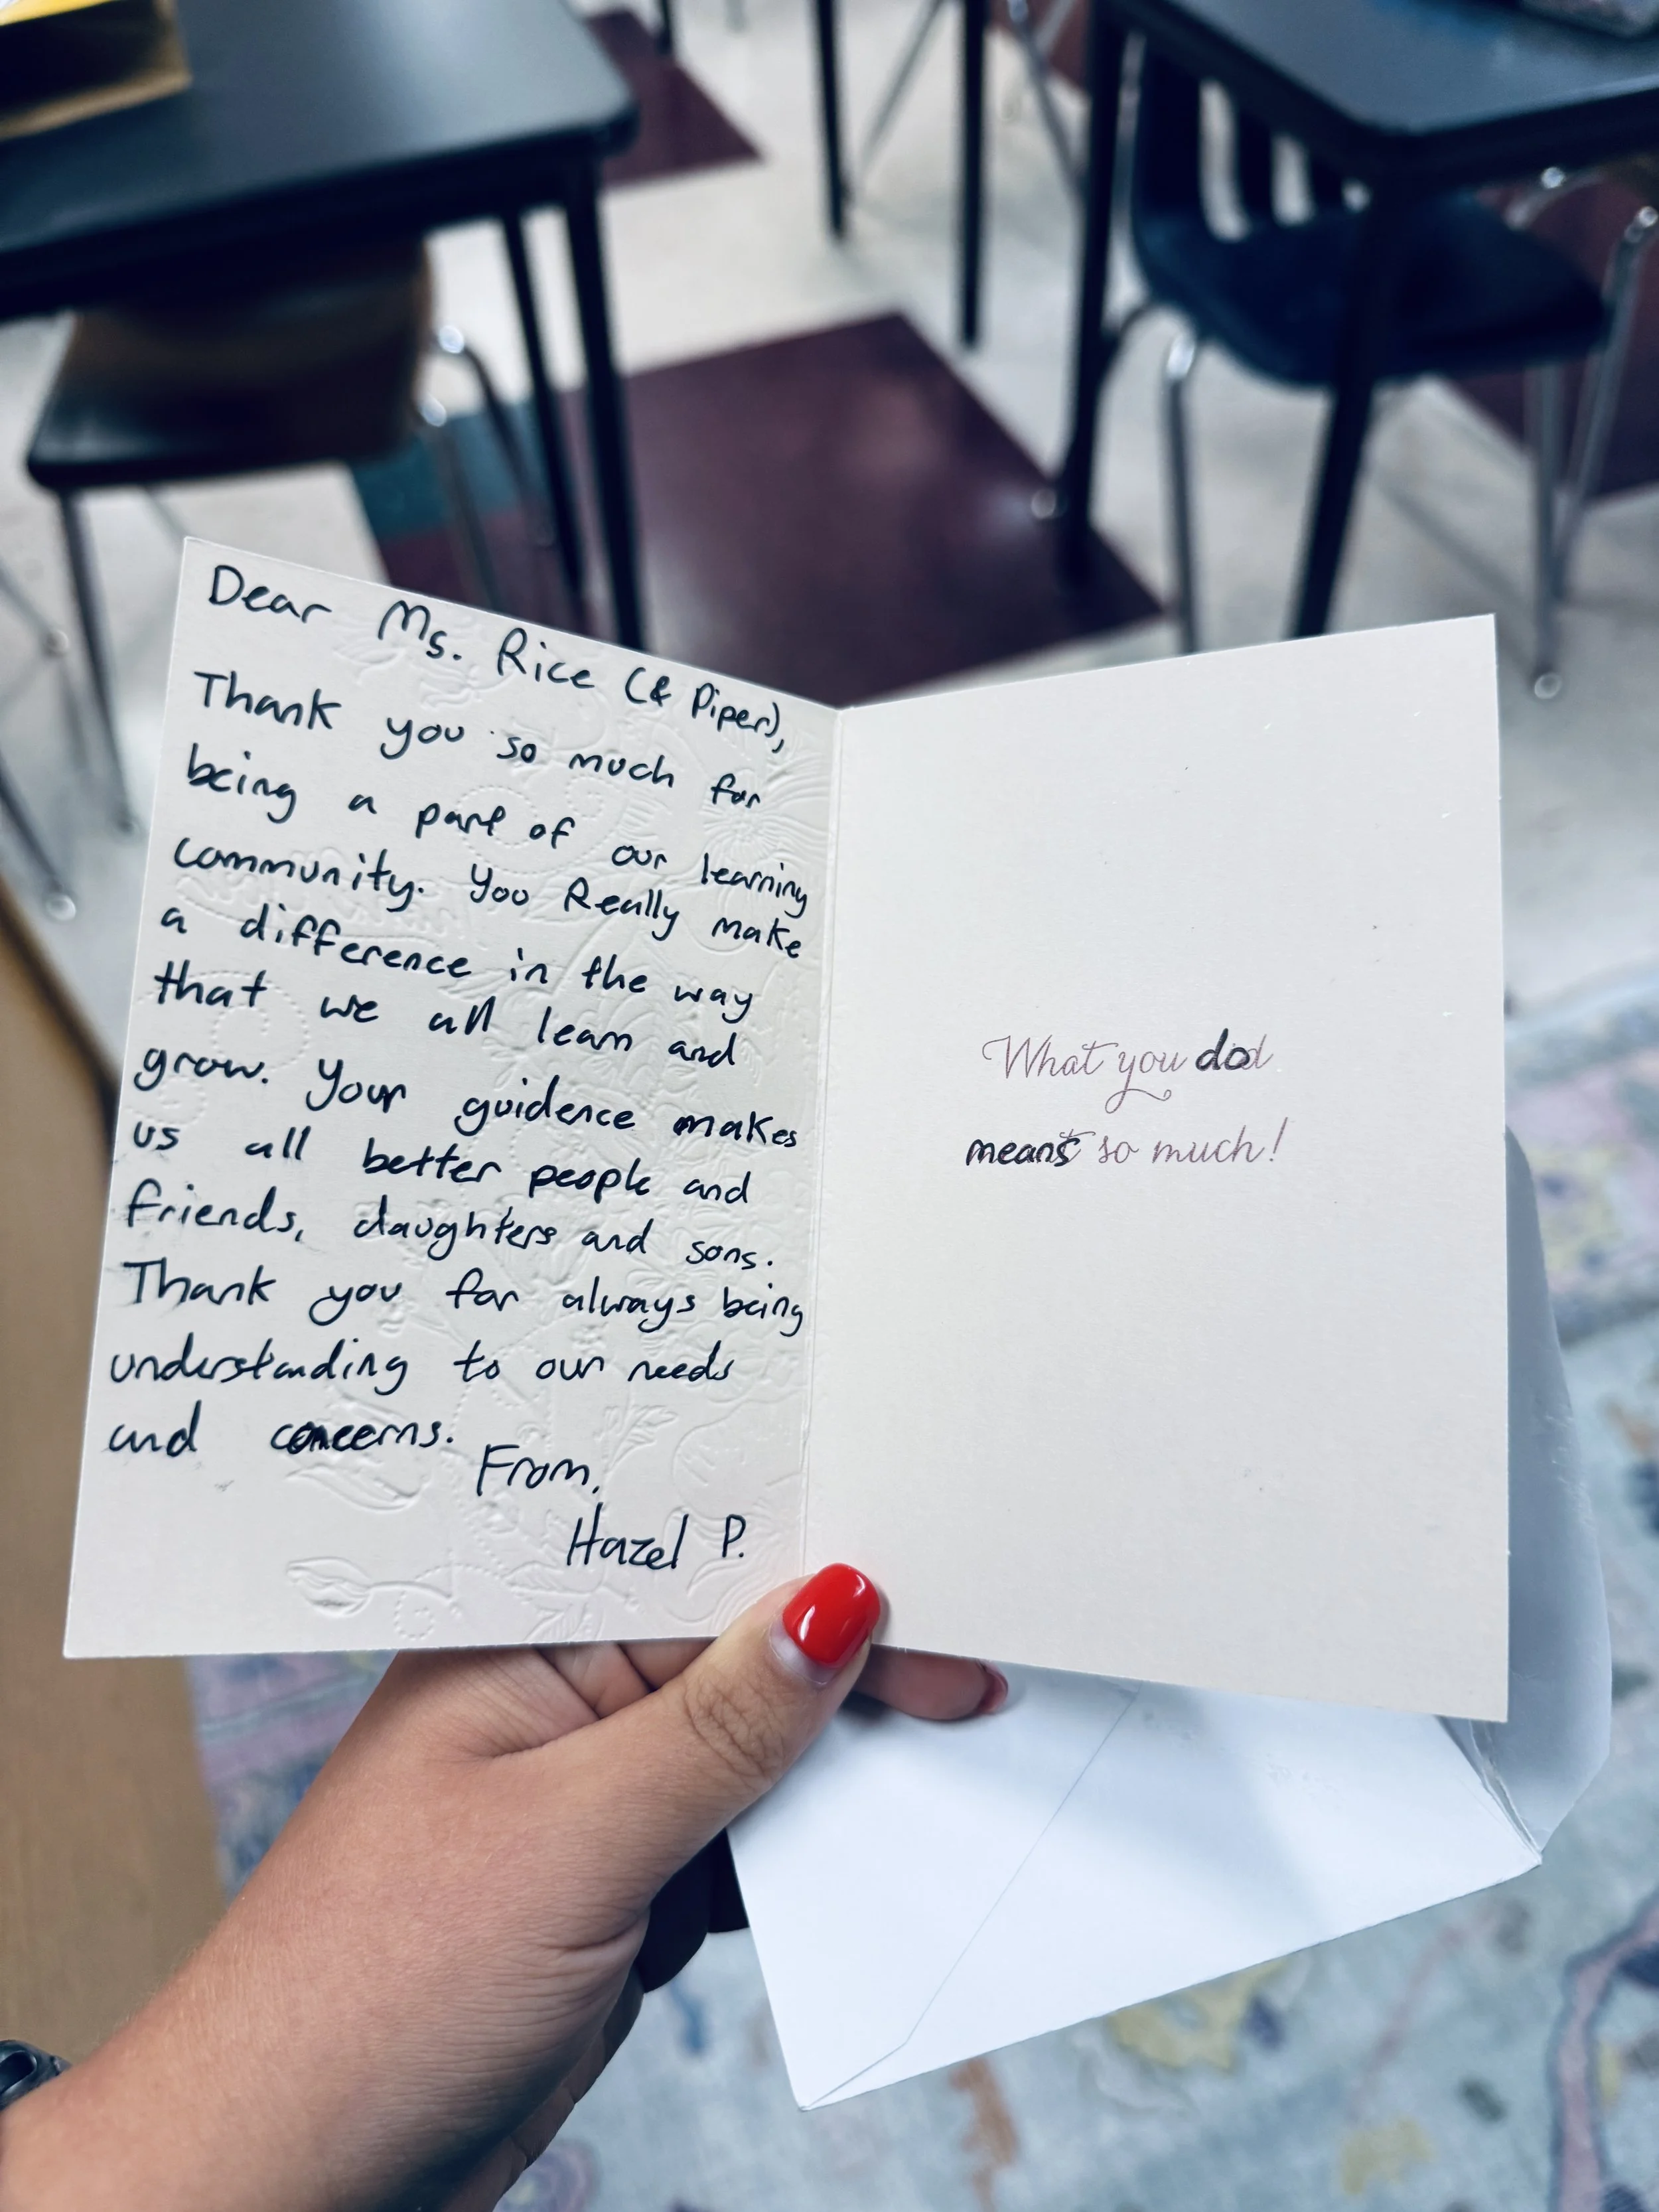 Dear Ms. Rice (& Piper),
Thank you so much for
being a part of our learning
community. You Really make
a difference in the way
that we all learn and
grow. Your guidence makes
us all better people and
friends, daughters and sons.
Thank you for always being
understanding to our needs
and concerns.
From,
Hazel P.
What you do
means so much!